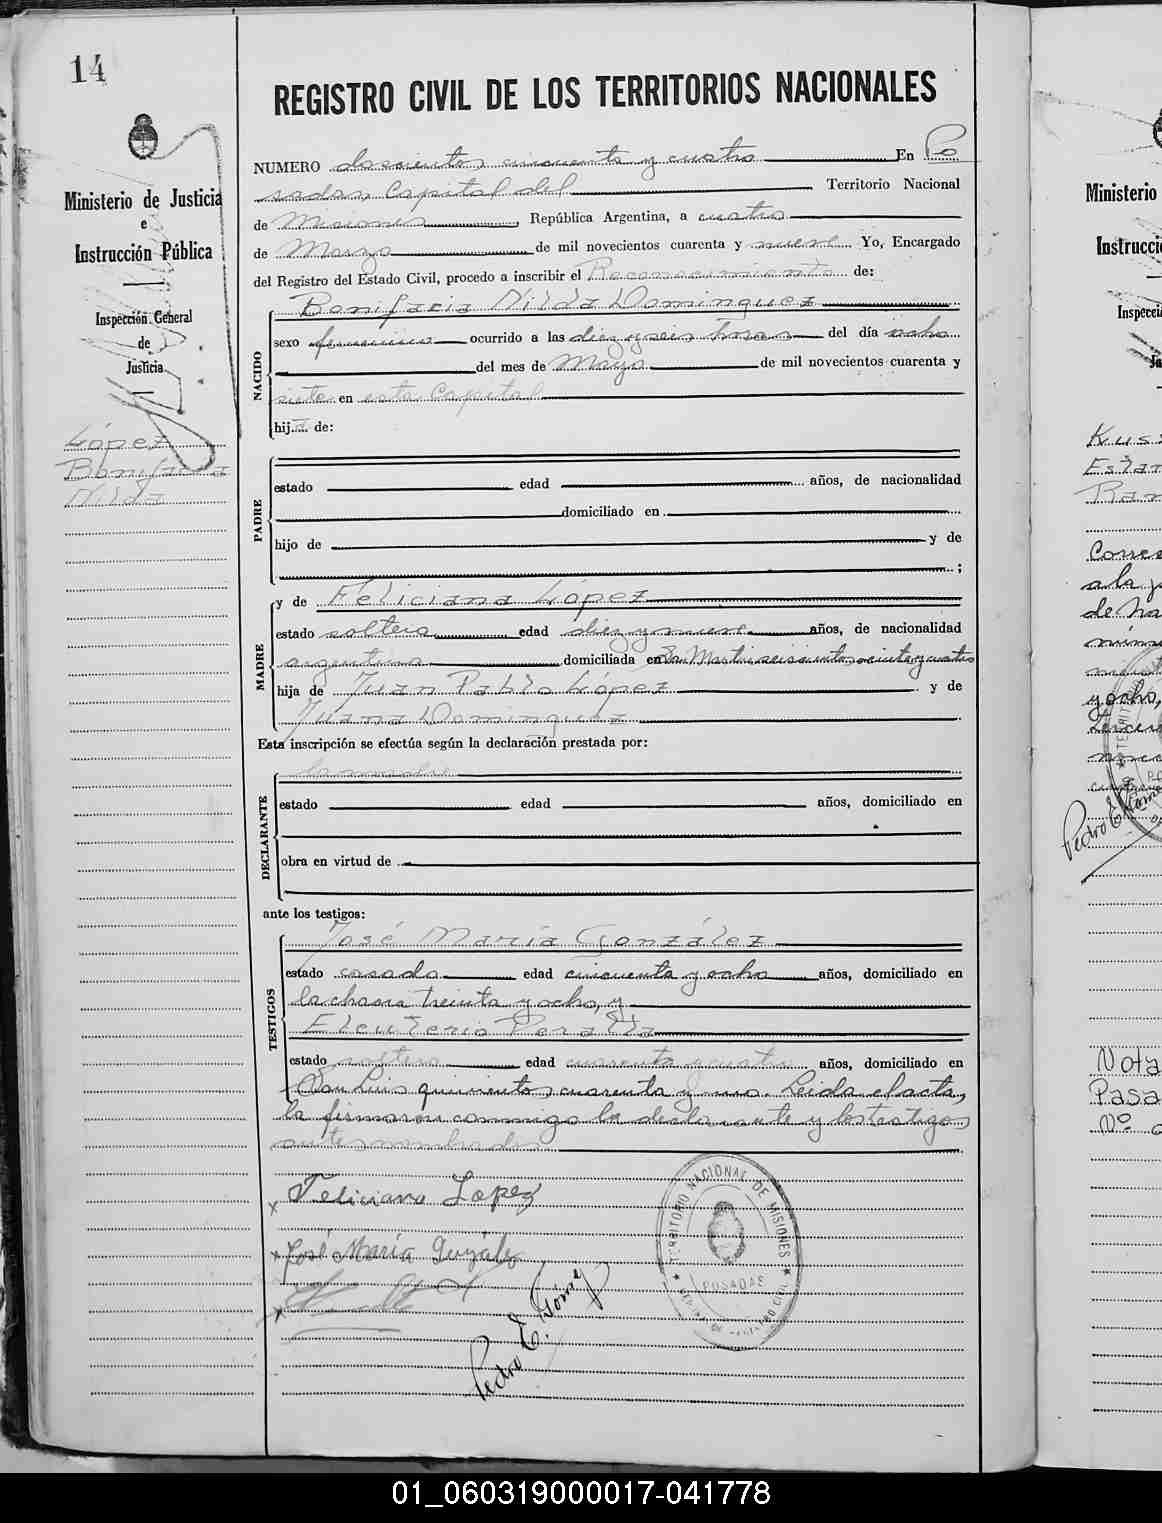 14
REGISTRO CIVIL DE LOS TERRITORIOS NACIONALES
Ministerio de Justicia
e
Instrucción Pública
Inspección General
de
Justicia
López
Bonifacia
Nilda
NUMERO doscientos cincuenta y cuatro En Po
sadas Capital del Territorio Nacional
de Misiones República Argentina, a cuatro
de Marzo de mil novecientos cuarenta y nueve Yo, Encargado
del Registro del Estado Civil, procedo a inscribir el Reconocimiento de:
NACIDO
Bonifacia Nilda Dominguez
sexo femenino ocurrido a las diez y seis horas del día ocho
del mes de Mayo de mil novecientos cuarenta y
siete en esta Capital
hija de:
PADRE
estado edad años, de nacionalidad
domiciliado en
hijo de y de
;
MADRE
y de Feliciana López
estado soltera edad diez y nueve años, de nacionalidad
argentina domiciliada en San Martin seiscientos ochenta y cuatro
hija de Juan Pablo López y de
Juana Dominguez
Esta inscripción se efectúa según la declaración prestada por:
la madre
DECLARANTE
estado edad años, domiciliado en
obra en virtud de
ante los testigos:
TESTIGOS
José María González
estado casado edad cincuenta y ocho años, domiciliado en
la chacra treinta y ocho, y
Eleuterio Peralta
estado soltero edad cuarenta y cuatro años, domiciliado en
San Luis quinientos cuarenta y uno. Leida el acta,
la firmaron conmigo la declarante y los testigos
antes nombrados
x Feliciana Lopez
x José María González
x
Pedro E. Gómez
TERRITORIO NACIONAL DE MISIONES
POSADAS
REGISTRO CIVIL
Ministerio
Instrucci
Inspecci
Ju
Kuss
Estan
Ram
a la
de na
y ocho,
Pedro E. Góme
Nota
Pasa
Nº
01_060319000017-041778